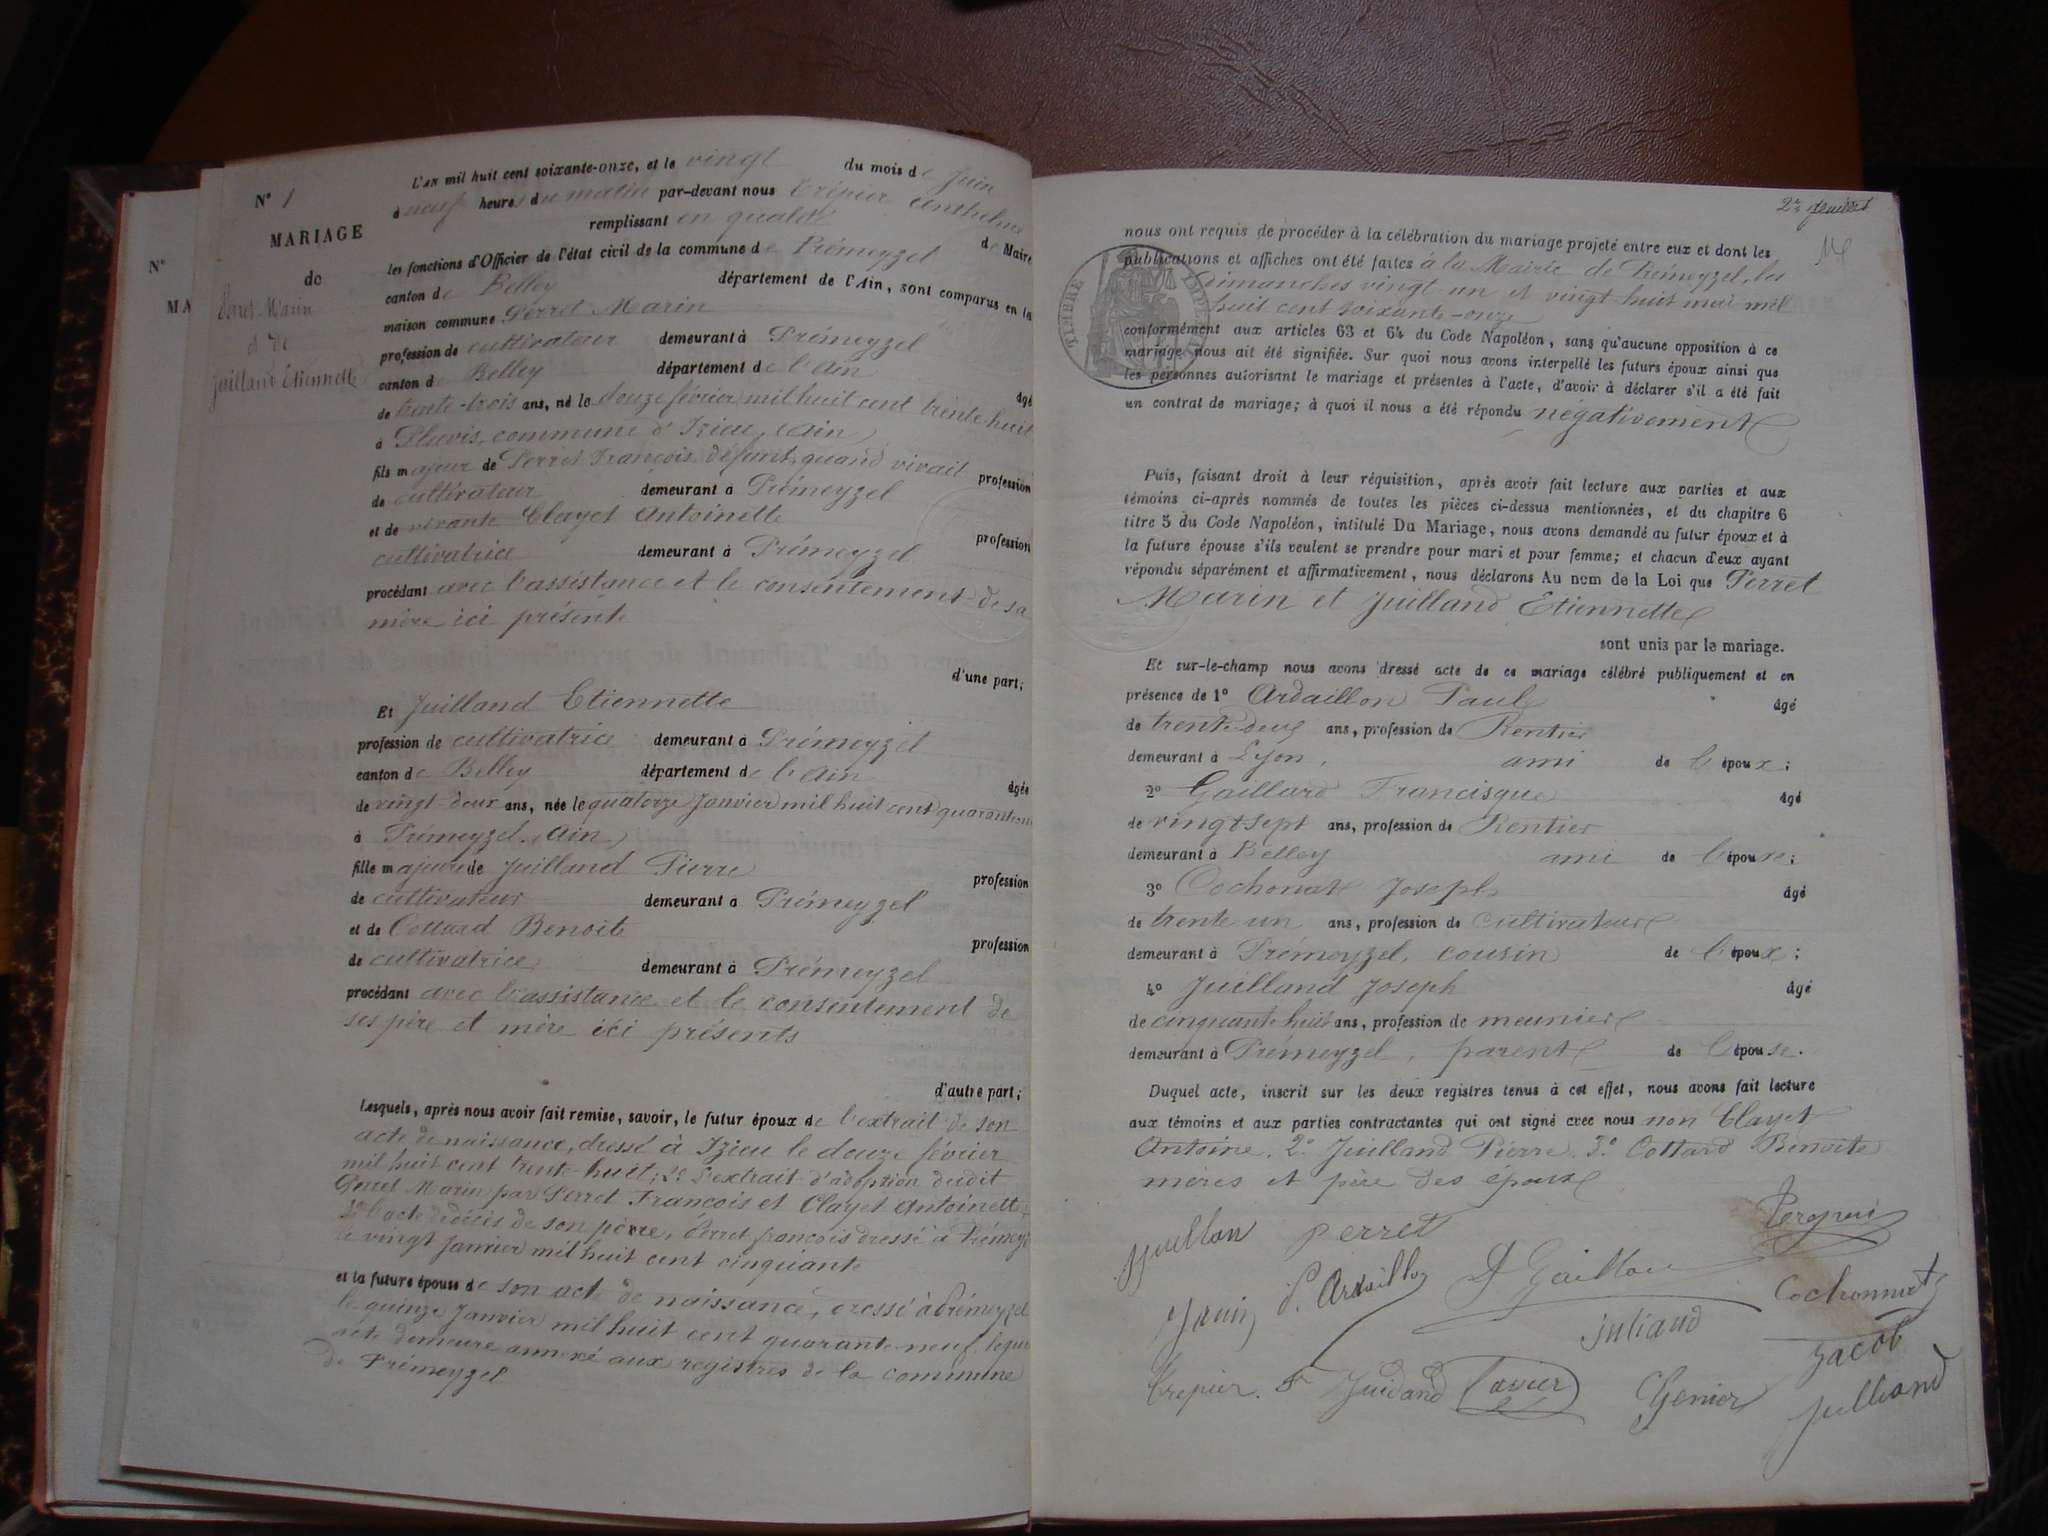 N° 1
MARIAGE
de
Perret Marin
et de
Juilland Etiennette
N°
MA
L'AN mil huit cent soixante-onze, et le vingt du mois de Juin
à neuf heures du matin par-devant nous Trépier Anthelme
remplissant en qualité de Maire
les fonctions d'Officier de l'état civil de la commune de Prémeyzel
canton de Belley département de l'Ain, sont comparus en la
maison commune Perret Marin
profession de cultivateur demeurant à Prémeyzel
canton de Belley département de l'Ain âgé
de trente-trois ans, né le douze février mil huit cent trente huit
à Pluvis, commune d'Izieu, (Ain)
fils majeur de Perret François, défunt, quand vivait profession
de cultivateur demeurant à Prémeyzel
et de vivante Clayet Antoinette profession
cultivatrice demeurant à Prémeyzel
procédant avec l'assistance et le consentement de sa
mère ici présente
d'une part;
Et Juilland Etiennette
profession de cultivatrice demeurant à Prémeyzel
canton de Belley département de l'Ain âgée
de vingt-deux ans, née le quatorze Janvier mil huit cent quarante
à Prémeyzel, (Ain)
fille majeure de Juilland Pierre profession
de cultivateur demeurant à Prémeyzel
et de Cottard Benoite profession
de cultivatrice demeurant à Prémeyzel
procédant avec l'assistance et le consentement de
ses père et mère ici présents
d'autre part;
Lesquels, après nous avoir fait remise, savoir, le futur époux de l'extrait de son
acte de naissance, dressé à Izieu le douze février
mil huit cent trente-huit; 2° l'extrait d'adoption dudit
Marin par Perret François et Clayet Antoinette;
3° l'acte de décès de son père, Perret françois dressé à Prémeyzel
le vingt Janvier mil huit cent cinquante
et la future épouse de son acte de naissance, dressé à Prémeyzel
le quinze Janvier mil huit cent quarante-neuf, lequel
acte demeure annexé aux registres de la commune
de Prémeyzel
2me feuillet
nous ont requis de procéder à la célébration du mariage projeté entre eux et dont les
publications et affiches ont été faites à la Mairie de Prémeyzel, les
dimanches vingt un et vingt-huit mai mil
huit cent soixante-onze
TIMBRE IMPÉRIAL
conformément aux articles 63 et 64 du Code Napoléon, sans qu'aucune opposition à ce
mariage nous ait été signifiée. Sur quoi nous avons interpellé les futurs époux ainsi que
les personnes autorisant le mariage et présentes à l'acte, d'avoir à déclarer s'il a été fait
un contrat de mariage; à quoi il nous a été répondu négativement
Puis, faisant droit à leur réquisition, après avoir fait lecture aux parties et aux
témoins ci-après nommés de toutes les pièces ci-dessus mentionnées, et du chapitre 6
titre 5 du Code Napoléon, intitulé Du Mariage, nous avons demandé au futur époux et à
la future épouse s'ils veulent se prendre pour mari et pour femme; et chacun d'eux ayant
répondu séparément et affirmativement, nous déclarons Au nom de la Loi que Perret
Marin et Juilland Etiennette
sont unis par le mariage.
Et sur-le-champ nous avons dressé acte de ce mariage célébré publiquement et en
présence de 1° Ardaillon Paul âgé
de trente-deux ans, profession de Rentier
demeurant à Lyon, ami de l'époux;
2° Gaillard Francisque âgé
de vingt sept ans, profession de Rentier
demeurant à Belley ami de l'époux;
3° Cochonat Joseph âgé
de trente un ans, profession de cultivateur
demeurant à Prémeyzel, cousin de l'époux;
4° Juilland Joseph âgé
de cinquante huit ans, profession de meunier
demeurant à Prémeyzel, parent de l'épouse.
Duquel acte, inscrit sur les deux registres tenus à cet effet, nous avons fait lecture
aux témoins et aux parties contractantes qui ont signé avec nous non Clayet
Antoine. 2° Juilland Pierre. 3° Cottard Benoite
mères et père des époux
perret
P. Ardaillon
Cochonnat
juliand
Jacob
Trepier. F Juidand Cavier Genier Julliand